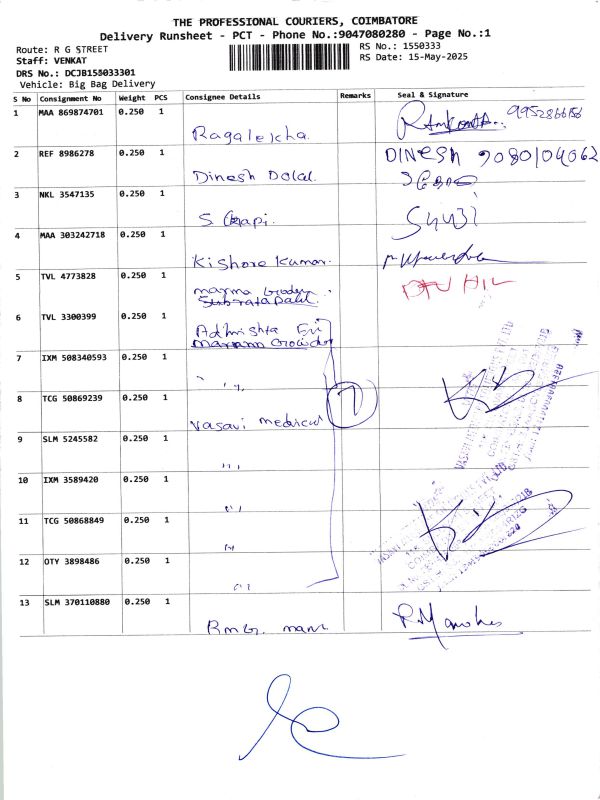 THE PROFESSIONAL COURIERS, COIMBATORE
Delivery Runsheet - PCT - Phone No.:9047080280 - Page No.:1
Route: R G STREET
RS No.: 1550333
Staff: VENKAT
RS Date: 15-May-2025
DRS No.: DCJB155033301
Vehicle: Big Bag Delivery
S No Consignment No Weight PCS Consignee Details Remarks Seal & Signature
1 MAA 869874701 0.250 1 Ragalekha. 9952866156
2 REF 8986278 0.250 1 Dinesh Dalal. DINESH 9080104062
3 NKL 3547135 0.250 1 S
4 MAA 303242718 0.250 1 Kishore Kumar.
5 TVL 4773828 0.250 1
6 TVL 3300399 0.250 1
7 IXM 508340593 0.250 1 " 7
8 TCG 50869239 0.250 1 Vasavi medical
9 SLM 5245582 0.250 1 "
10 IXM 3589420 0.250 1 "
11 TCG 50868849 0.250 1 "
12 OTY 3898486 0.250 1 "
13 SLM 370110880 0.250 1